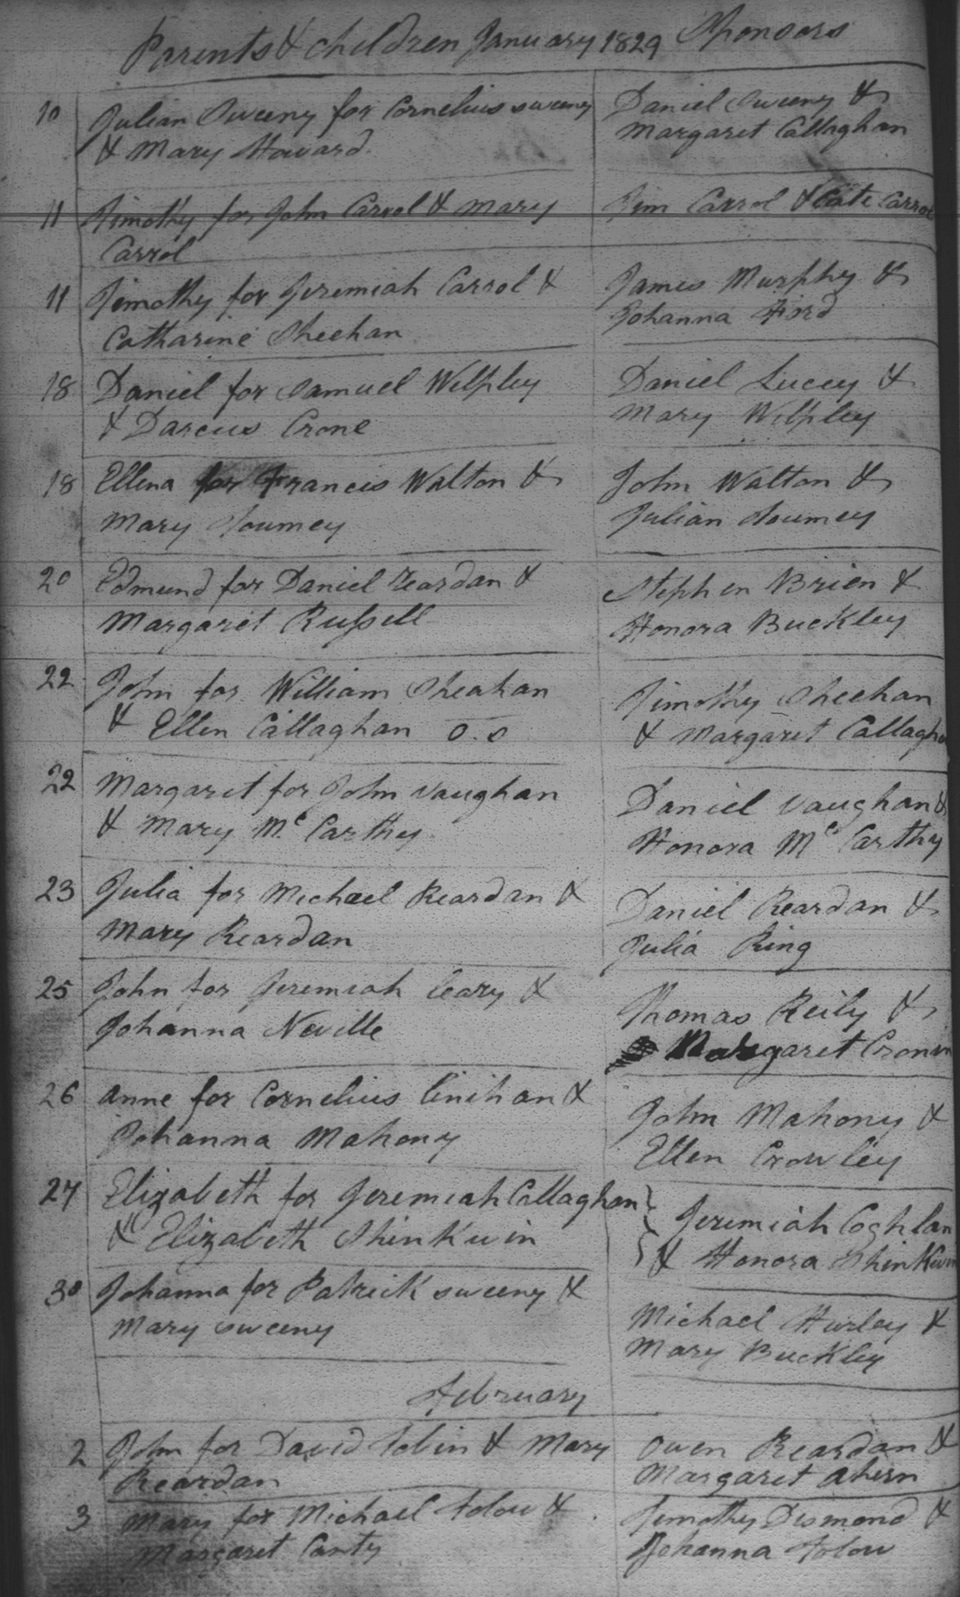 Parents & children January 1829 Sponsors
10 Julian Sweeny for Cornelius sweeny
& Mary Howard.
Daniel Sweeny &
Margaret Callaghan
11 Timothy for John Carrol & Mary
Carrol
Tim Carrol & Cate Carrol
11 Timothy for Jeremiah Carrol &
Catharine Sheehan
James Murphy &
Johanna Ford
18 Daniel for Samuel Welpley
& Darcus Crone
Daniel Lucey &
Mary Welpley
18 Ellena for Francis Walton &
Mary Toumey
John Walton &
Julian Toumey
20 Edmund for Daniel Reardan &
Margaret Russell
Stephen Brien &
Honora Buckley
22 John for William Sheahan
& Ellen Callaghan O.S
Timothy Sheehan
& Margaret Callagha
22 Margaret for John Vaughan
& Mary McCarthy.
Daniel Vaughan &
Honora McCarthy
23 Julia for Michael Reardan &
Mary Reardan
Daniel Reardan &
Julia Ring
25 John for Jeremiah Leary &
Johanna Neville
Thomas Reily &
Margaret Cronin
26 Anne for Cornelius Linihan &
Johanna Mahony
John Mahony &
Ellen Crowley
27 Elizabeth for Jeremiah Callaghan
& Elizabeth Shinkwin
Jeremiah Coghlan
& Honora Shinkwin
30 Johanna for Patrick sweeny &
Mary sweeny
Michael Hurley &
Mary Buckley
February
2 John for David Tobin & Mary
Reardan
Owen Reardan &
Margaret Ahern
3 Mary for Michael &
Margaret Canty
Timothy Desmond &
Johanna